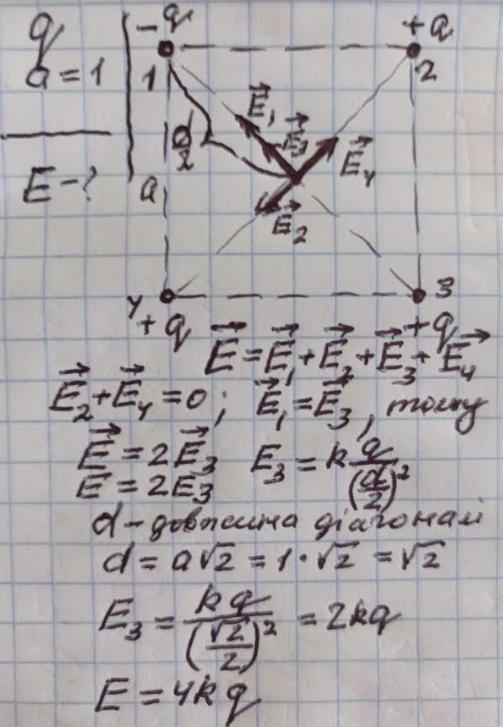 q
a = 1
E - ?
- q
1
+ q
2
d/2
a
E⃗₁
E⃗₃
E⃗₄
E⃗₂
4
+ q
3
+ q
E⃗ = E⃗₁ + E⃗₂ + E⃗₃ + E⃗₄
E⃗₂ + E⃗₄ = 0; E⃗₁ = E⃗₃, тому
E⃗ = 2E⃗₃ E₃ = k q/(d/2)²
E = 2E₃
d - довжина діагоналі
d = a√2 = 1·√2 = √2
E₃ = kq/(√2/2)² = 2kq
E = 4kq